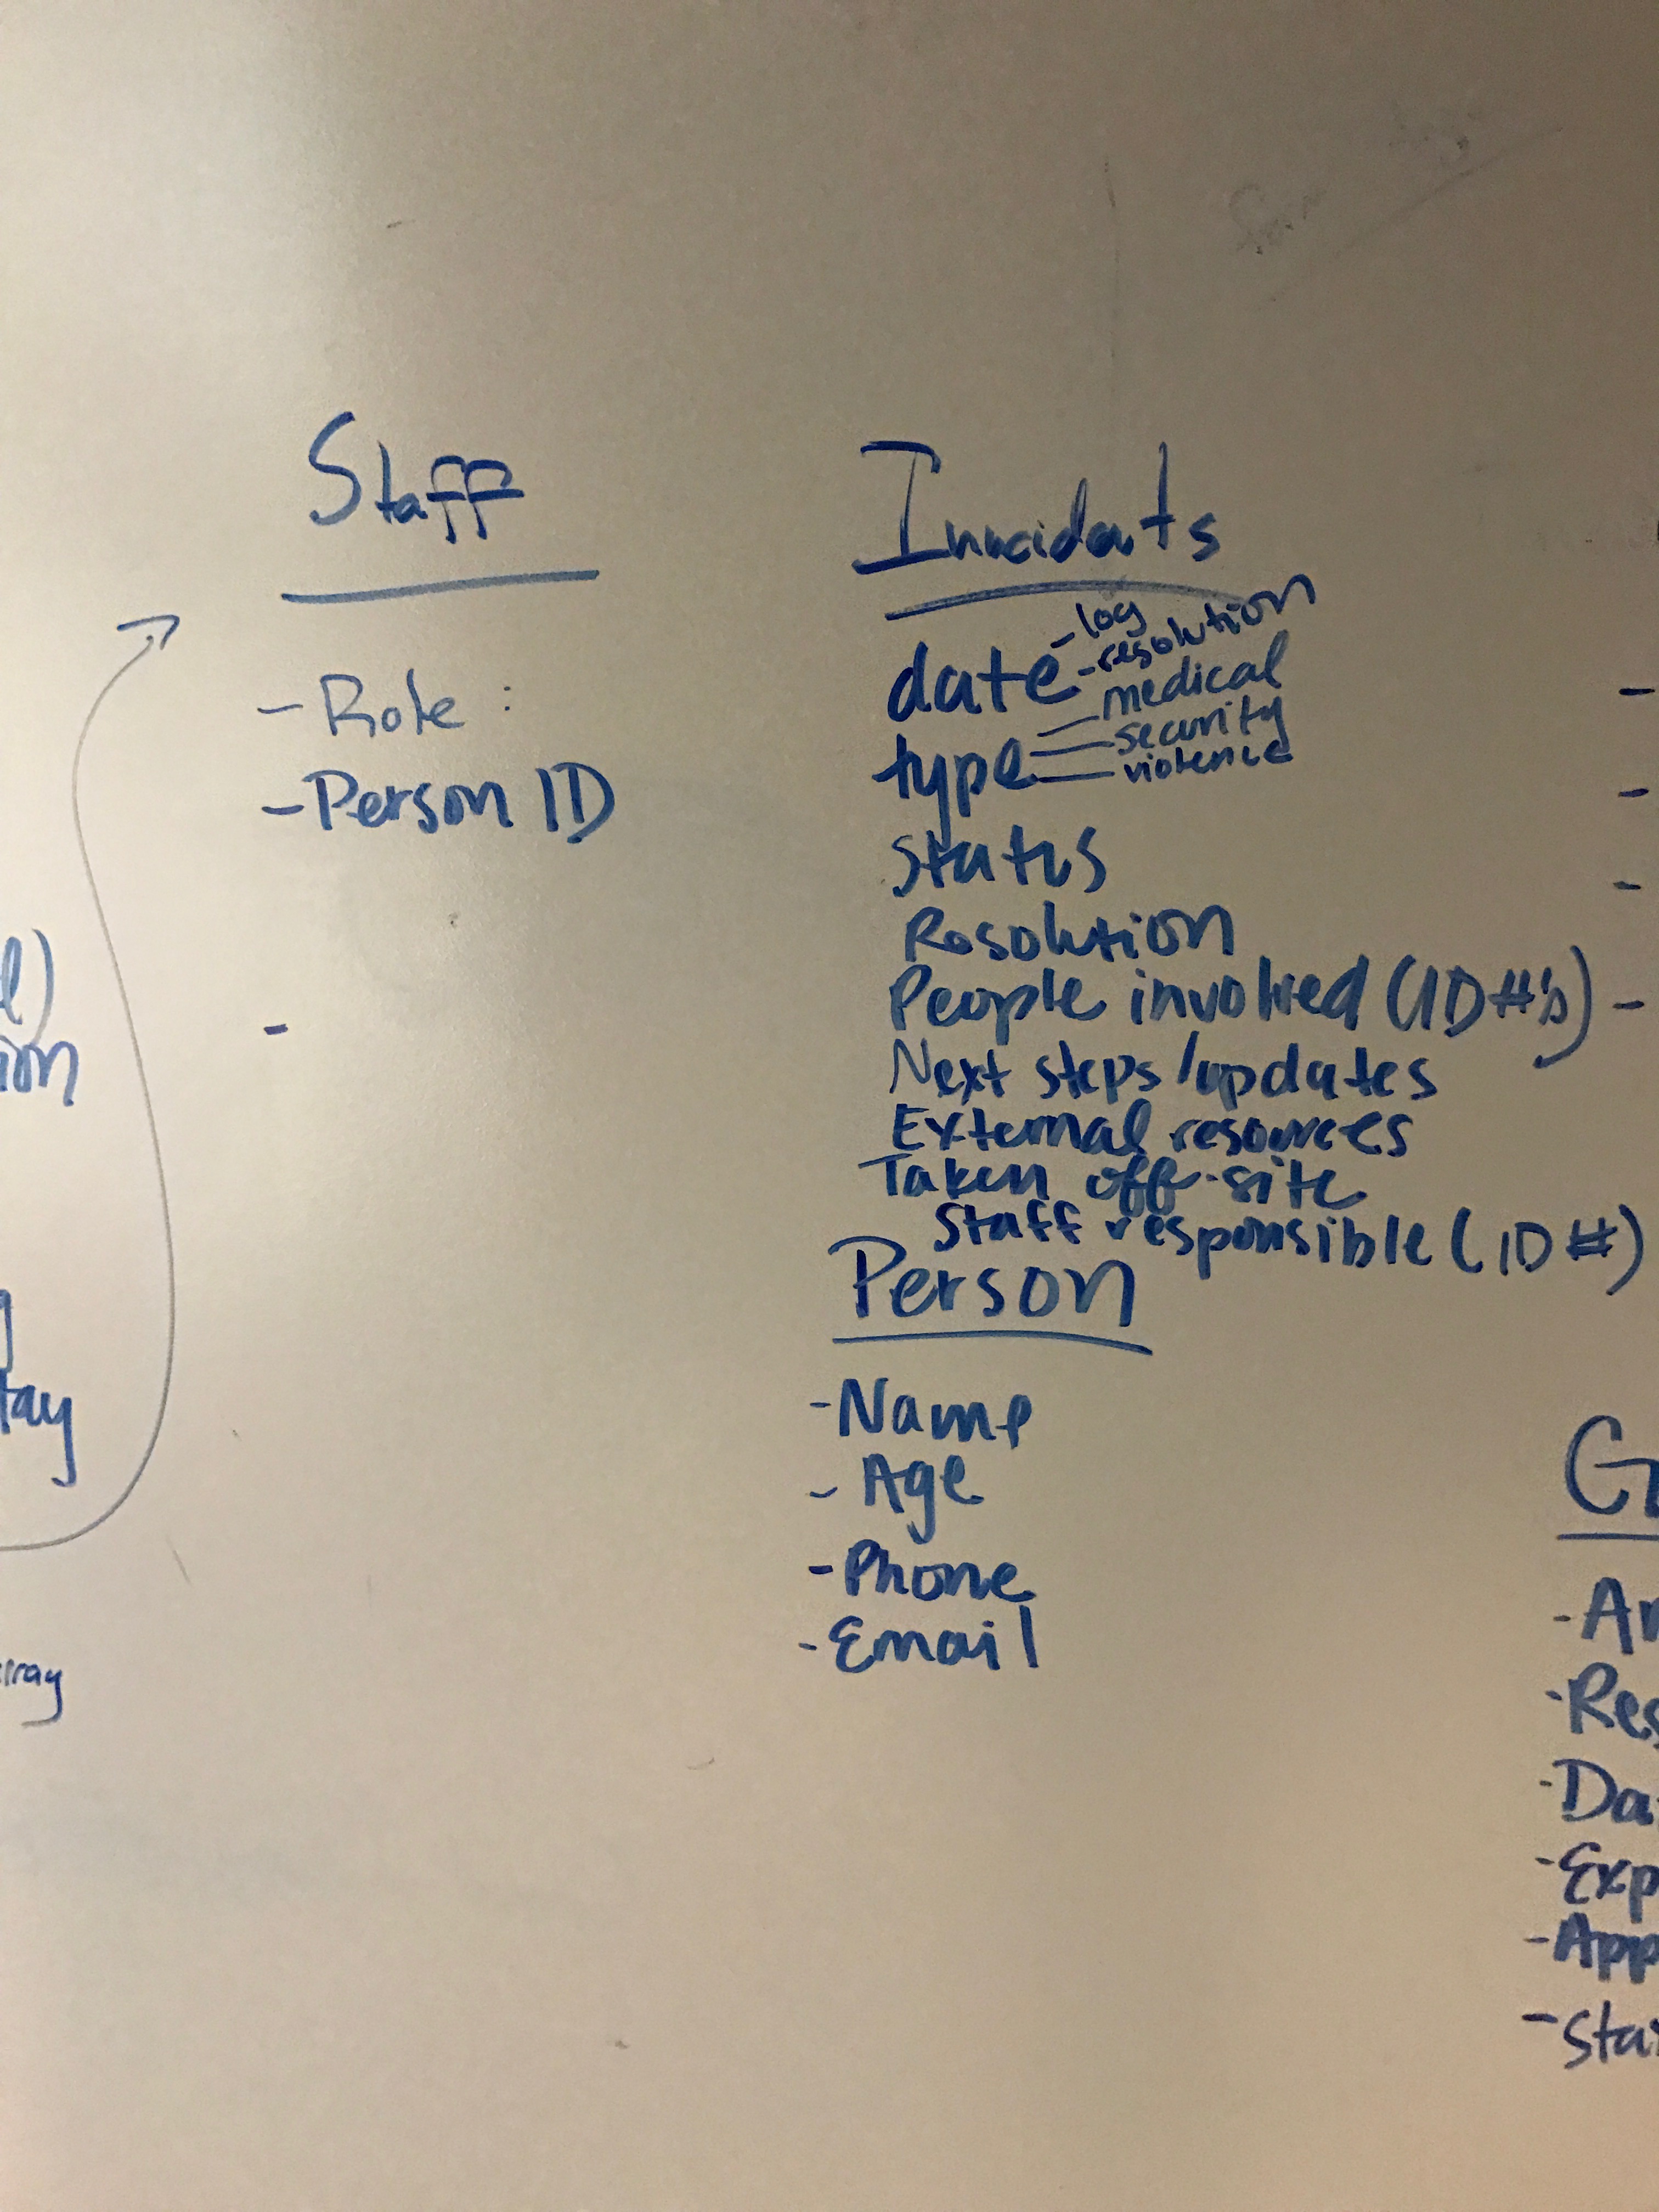 Staff
- Role :
- Person ID
-
Inncidats
date - log
- resolution
type medical
security
violence
Status
Resolution
People involved (ID #'s)
Next steps/updates
External resources
Taken off-site
Staff responsible (ID #)
Person
- Name
- Age
- Phone
- Email